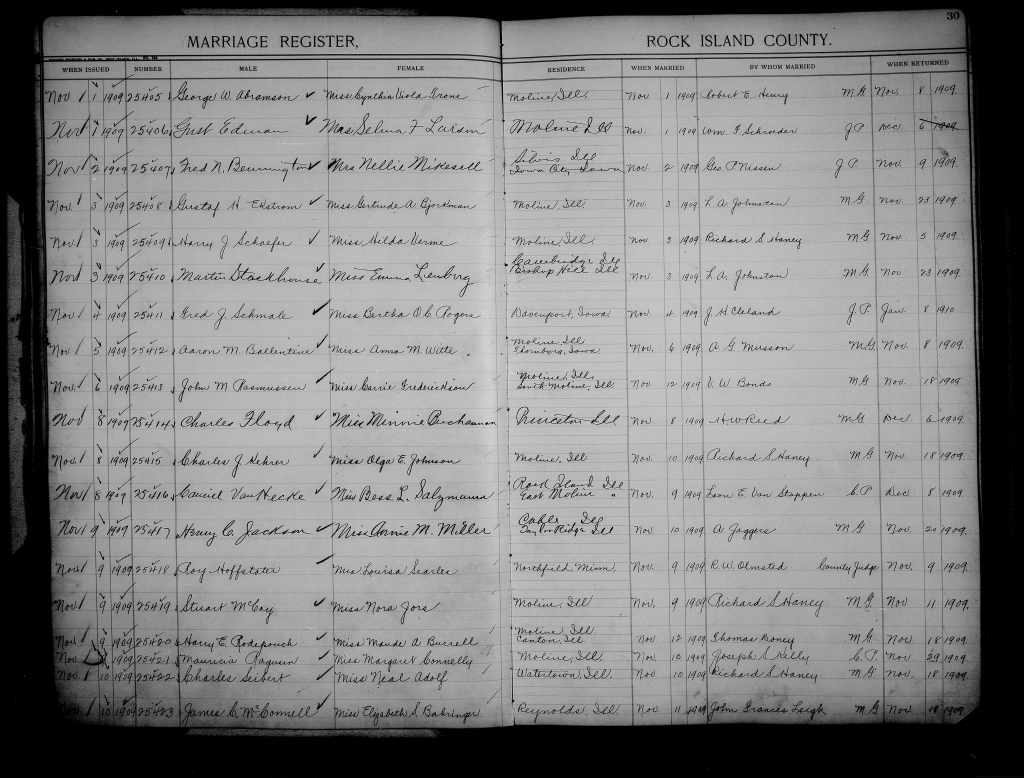 30
MARRIAGE REGISTER, ROCK ISLAND COUNTY.
WHEN ISSUED NUMBER MALE FEMALE RESIDENCE WHEN MARRIED BY WHOM MARRIED WHEN RETURNED
Nov 1 1909 25405 George W. Abramson Miss Cynthia Viola Moline, Ill Nov 1 1909 Robert E. Henry M.G. Nov. 8 1909.
Nov 1 1909 25406 Gust Edman Mrs. Selma F Larson Moline Ill Nov. 1 1909 Wm. F Schroeder J.P. Dec 6 1909
Silvis Ill
Nov 2 1909 25407 Fred N. Bennington Mrs Nellie Mikesell Iowa City Iowa Nov. 2 1909 Geo. P Nissen J.P. Nov. 9 1909.
Nov. 3 1909 25408 Gustaf H Ekstrom Miss Gertrude A Bjorkman Moline, Ill Nov. 3 1909 L A Johnston M.G. Nov. 23 1909.
Nov. 3 1909 25409 Harry J Schaefer Miss Hilda Verme Moline, Ill. Nov 3 1909 Richard S Haney M.G. Nov. 5 1909.
Cambridge Ill
Nov 3 1909 25410 Martin Stackhouse Miss Emma Lienberg Bishop Hill Ill Nov 3 1909 L.A. Johnston M.G. Nov 23 1909.
Nov. 4 1909 25411 Fred J. Schmale Miss Bertha O.C Rogers Davenport, Iowa Nov. 4 1909. J H Cleland J.P. Jan. 8 1910
Moline, Ill
Nov. 5 1909 25412 Aaron M. Ballentine Miss Anna M. Witte Iowa Nov. 6 1909 A G. Musson M.G. Nov. 8 1909.
Moline, Ill.
Nov. 6 1909 25413 John M Rasmussen Miss Carrie Frederickson South Moline, Ill Nov 12 1909 V. W Bonds M.G Nov. 18 1909
Nov 8 1909 25414 Charles Floyd Miss Minnie Buchannan Princeton Ill Nov 8 1909 H W Reed M.G Dec 6 1909.
Nov. 8 1909 25415 Charles J. Kehrer Miss Olga E. Johnson Moline, Ill Nov. 10 1909 Richard S Haney M G Nov. 18 1909.
Rock Island Ill
Nov 8 1909 25416 Camiel Van Hecke Miss Bess L. Salzmann East Moline " Nov. 9 1909 Leon E Van Stappen C.P. Dec 8 1909.
Cable Ill
Nov 9 1909 25417 Henry C. Jackson Miss Annie M. Miller Taylor Ridge Ill Nov 10 1909 A Jaggers M G Nov. 20 1909.
Nov 9 1909 25418 Roy Hoffstater Miss Louisa Searles Northfield Minn. Nov. 9 1909 R. W. Olmsted County Judge Nov. 9 1909.
Nov. 9 1909 25419 Stuart McCoy Miss Nora Jors Moline, Ill Nov. 9 1909 Richard S Haney M.G. Nov 11 1909.
Moline, Ill
Nov. 9 1909 25420 Harry E. Miss Maude A Burrell Canton, Ill Nov 12 1909 Thomas Doney M.G Nov. 18 1909.
Nov. 1909 25421 Miss Margaret Connelly Moline, Ill Nov. 10 1909 Joseph S Kelly C.P. Nov 29 1909.
Nov. 10 1909 25422 Charles Seibert Miss Neal Adolf Watertown, Ill. Nov 10 1909 Richard S. Haney M G Nov. 18 1909.
Nov. 10 1909 25423 James C. McConnell Miss Elizabeth S Bahringer Reynolds Ill Nov 11 1909 John Francis Leigh M G Nov. 18 1909.